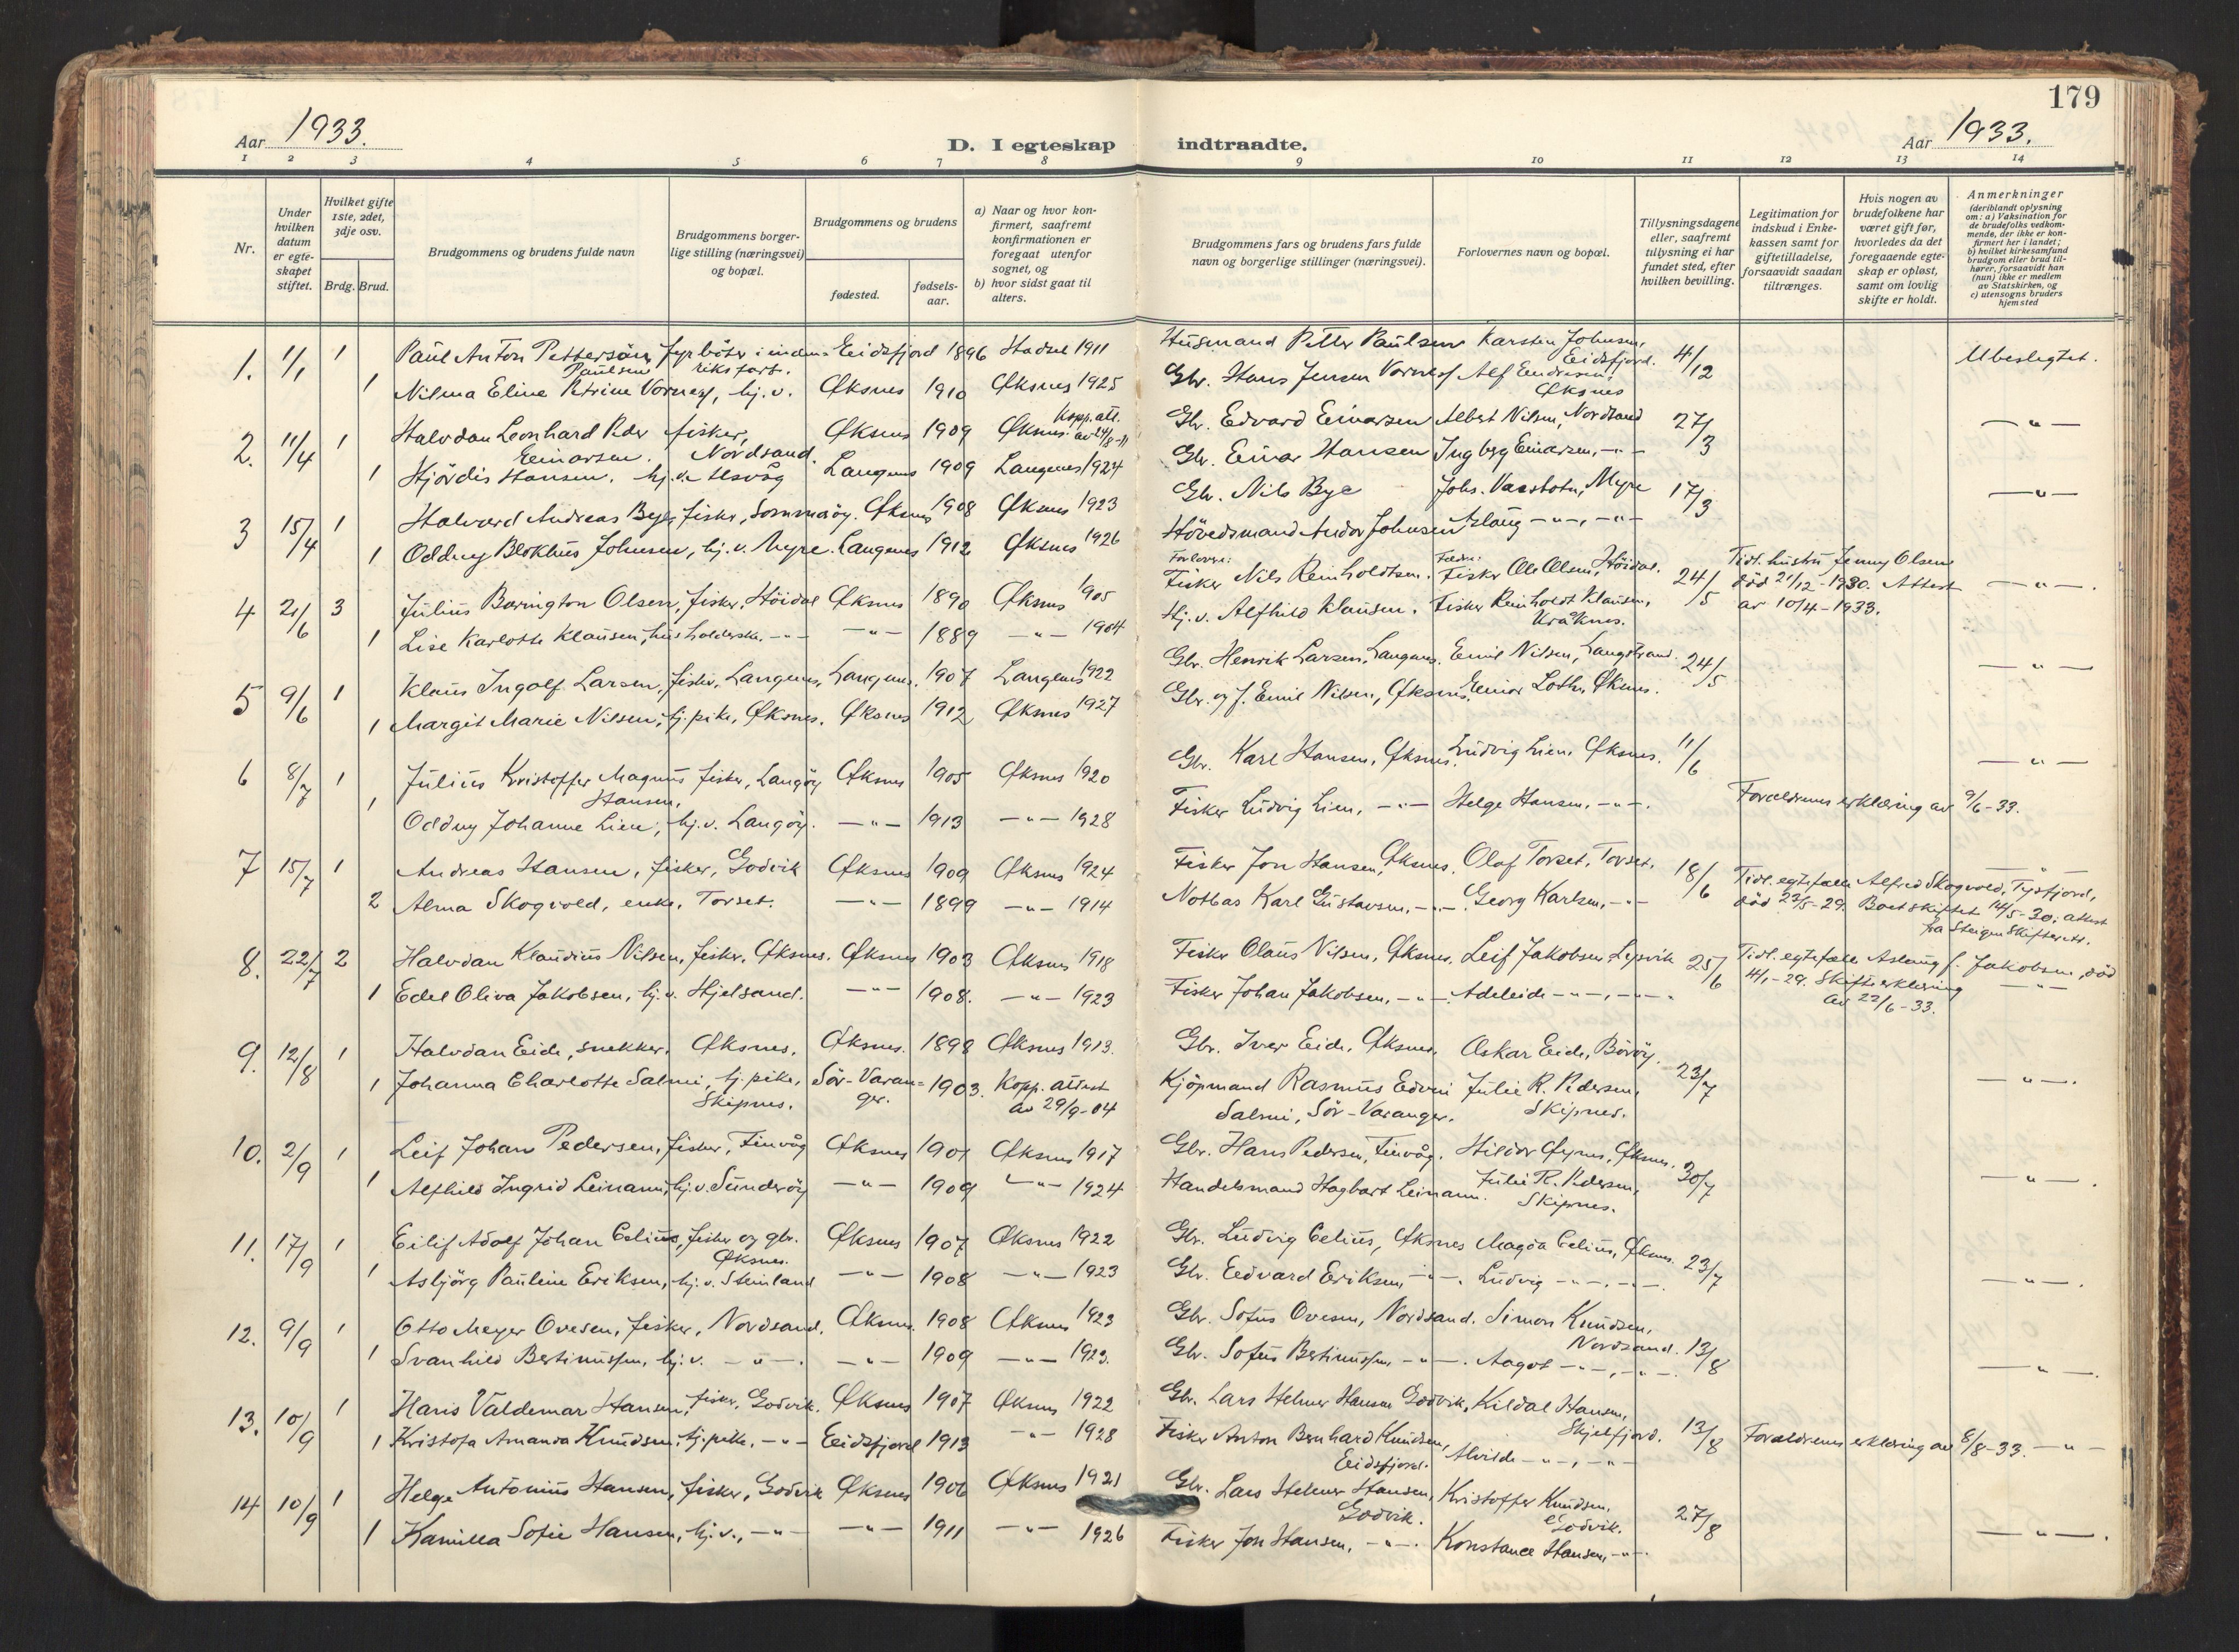 179
Aar 1933.
D. I egteskap indtraadte.
Aar 1933.
1 2 3 4 5 6 7 8 9 10 11 12 13 14
Nr.
Under hvilken datum er egteskapet stiftet.
Hvilket gifte 1ste, 2det, 3dje osv.
Brdg. Brud.
Brudgommens og brudens fulde navn
Brudgommens borgerlige stilling (næringsvei) og bopæl.
Brudgommens og brudens
fødested.
fødselsaar.
a) Naar og hvor konfirmert, saafremt konfirmationen er foregaat utenfor sognet, og
b) hvor sidst gaat til alters.
Brudgommens fars og brudens fars fulde navn og borgerlige stillinger (næringsvei).
Forlovernes navn og bopæl.
Tillysningsdagene eller, saafremt tillysning ei har fundet sted, efter hvilken bevilling.
Legitimation for indskud i Enkekassen samt for giftetilladelse, forsaavidt saadan tiltrænges.
Hvis nogen av brudefolkene har været gift før, hvorledes da det foregaaende egteskap er opløst, samt om lovlig skifte er holdt.
Anmerkninger (deriblandt oplysning om: a) Vaksination for de brudefolks vedkommende, der ikke er konfirmert her i landet; b) hvilket kirkesamfund brudgom eller brud tilhører, forsaavidt han (hun) ikke er medlem av Statskirken, og c) utensogns bruders hjemsted
1. 11/1 1 Paul Anton Pettersön Paulsen, fyrböter i indenriksfart. Eidsfjord 1896 Hadsel 1911 Husmand Petter Paulsen Karsten Johnsen, Eidsfjord. 4/12 Ubeslegtet.
1 Nilma Eline Petrine Vornes, hj.v. Øksnes 1910 Øksnes 1925 Gbr. Hans Jensen Vornes Alf Eendresen, Øksnes
2. 11/4 1 Halvdan Leonhard Peder Einarsen. fisker, Nordsand. Øksnes 1909 Øksnes. Kopp.att. av 24/8-11 Gbr. Edvard Einarsen Albert Nilsen, Nordsand 27/3 —"—
1 Hjördis Hansen. hj.v. Alsvåg Langenes 1909 Langenes 1924 Gbr. Einar Hansen Ingbrg Einarsen, —"—
3 15/4 1 Halvard Andreas Bye, fisker, Sommaröy. Øksnes 1908 Øksnes 1923 Gbr. Nils Bye Johs. Vassbotn, Myre 17/3 —"—
1 Oddny Blokhus Johnsen, hj.v. Myre. Langenes 1912 Øksnes 1926 Hövedsmand Andor Johnsen Aslaug —"—, —"—
4 21/6 3 Julius Barington Olsen, fisker, Höidal Øksnes 1890 Øksnes 1905 Forlovere: Fisker Nils Reinholdtsen. Fedre: Fisker Ole Olsen, Höidal. 24/5 Tidl. hustru Jenny Olsen död 21/12-1930. Attest av 10/4-1933. —"—.
1 Lise Karlotte Klausen, husholderske. —"— —"— 1889 —"— 1904 Hj.v. Alfhild Klausen. Fisker Reinholdt Klausen, Kråknes.
5 9/6 1 Klaus Ingolf Larsen, fisker, Langenes, Langenes. 1907 Langenes 1922 Gbr. Henrik Larsen, Langenes. Emil Nilsen, Langstrand. 24/5 —"—
1 Margit Marie Nilsen, hj.pike, Øksnes. Øksnes 1912 Øksnes 1927 Gbr. og f. Emil Nilsen, Øksnes. Einar Loth, Øksnes.
6 8/7 1 Julius Kristoffer Magnus Hansen, fisker, Langöy Øksnes 1905 Øksnes 1920 Gbr. Karl Hansen, Øksnes. Ludvig Lien, Øksnes. 11/6 —"—
1 Oddny Johanne Lien, hj.v. Langöy. —"— 1913 —"— 1928 Fisker Ludvig Lien, —"— Helge Hansen, —"—. Forældrenes erklæring av 9/6-33.
7 15/7 1 Andreas Hansen, fisker, Godvik Øksnes 1909 Øksnes 1924 Fisker Jon Hansen, Øksnes. Olaf Torset, Torset. 18/6 Tidl. egtefælle Alfred Skogvold, Tysfjord, död 22/5-29. Boet skiftet 14/5-30, attest fra Steigen Skifterett. —"—
2 Alma Skogvold, enke, Torset. —"— 1899 —"— 1914 Notbas Karl Gustavsen, —"—. Georg Karlsen, —"—
8. 22/7 2 Halvdan Klaudius Nilsen, fisker, Øksnes. Øksnes 1903 Øksnes 1918 Fisker Olaus Nilsen, Øksnes. Leif Jakobsen, 25/6 Tidl. egtefælle Aslaug f. Jakobsen, död 4/1-29. Skifteerklæring av 22/6-33. —"—
1 Edel Oliva Jakobsen, hj.v. Hjelsand. —"— 1908. —"— 1923 Fisker Johan Jakobsen, —"—. Adeleide —"—, —"—.
9. 12/8 1 Halvdan Eide, snekker. Øksnes. Øksnes. 1898 Øksnes 1913. Gbr. Iver Eide, Øksnes. Oskar Eide, Böröy. 23/7 —"—.
1 Johanna Charlotte Salmi, hj.pike, Skipnes. Sör-Varanger. 1903. Kopp. attest av 29/9-04 Kjöpmand Rasmus Edvin Salmi, Sör-Varanger. Julie R. Pedersen, Skipnes.
10. 2/9 1 Leif Johan Pedersen, fisker, Finvåg Øksnes 1901 Øksnes 1917 Gbr. Hans Pedersen, Finvåg. Hildor Øynes, Øksnes. 30/7 —"—.
1 Alfhild Ingrid Leinann, hj.v. Sunderöy —"— 1909 —"— 1924 Handelsmand Hagbart Leinann. Julie R. Pedersen, Skipnes.
11. 17/9 1 Eilif Adolf Johan Celius, fisker og gbr. Øksnes. Øksnes 1907 Øksnes 1922 Gbr. Ludvig Celius, Øksnes Magda Celius, Øksnes. 23/7 —"—.
1 Asbjörg Pauline Eriksen, hj.v. Steinland —"— 1908 —"— 1923 Gbr. Eedvard Eriksen, —"—. Ludvig —"—, —"—.
12. 9/9 1 Otto Meyer Ovesen, fisker, Nordsand. Øksnes. 1908 Øksnes 1923 Gbr. Sofus Ovesen, Nordsand. Simon Knudsen, Nordsand. 13/8 —"—.
1 Svanhild Bertinussen, hj.v. —"—. —"— 1909 —"— 1923. Gbr. Sofus Bertinussen —"—. Aagot —"—, —"—.
13. 10/9 1 Haris Valdemar Hansen, fisker, Godvik. Øksnes 1907 Øksnes 1922 Gbr. Lars Helmer Hansen Godvik. Kildal Hansen, Skjelfjord. 13/8 Forældrenes erklæring av 8/8-33. —"—
1 Kristofa Amanda Knudsen, hj.pike, —"— Eidsfjord 1913 —"— 1928 Fisker Anton Bernhard Knudsen, Eidsfjord. Alvilde —"—, —"—
14 10/9 1 Helge Antonius Hansen, fisker, Godvik Øksnes 1906 Øksnes 1921 Gbr. Lars Helmer Hansen, Godvik. Kristoffer Knudsen, Godvik. 27/8 —"—.
1 Kamilla Sofie Hansen, hj.v., —"— —"— 1911 —"— 1926 Fisker Jon Hansen, —"—. Konstance Hansen, —"—.